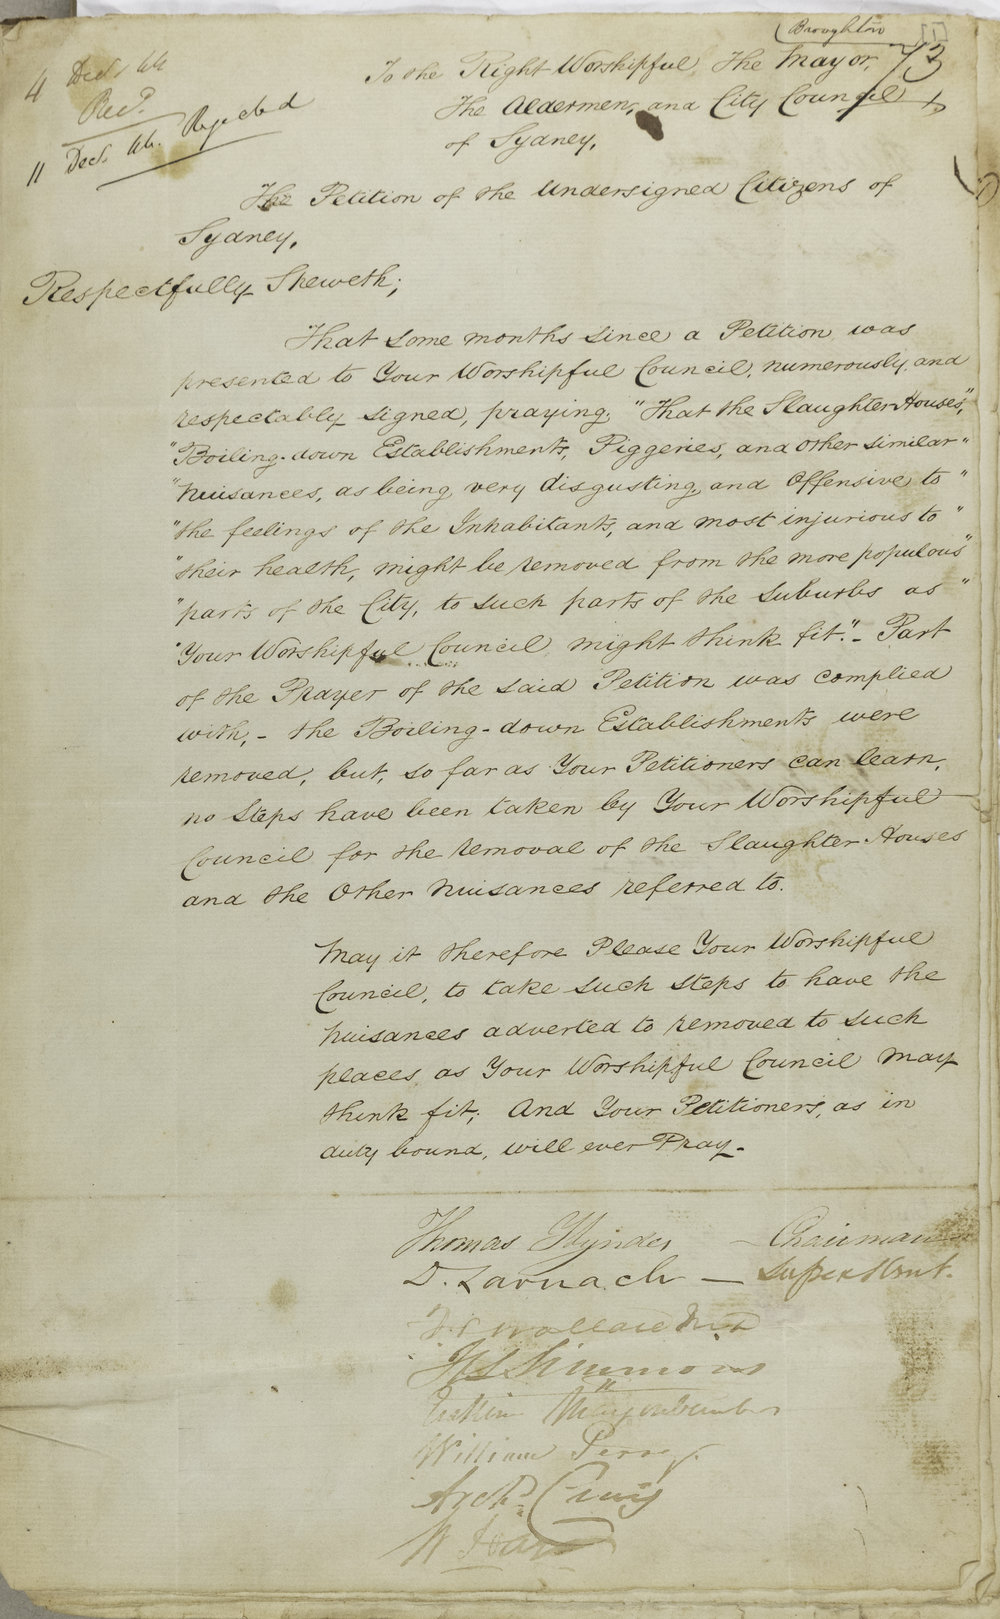 Broughton
73
4 Decr. 44
Recd.
11 Decr. 44. Rejected
To the Right Worshipful, the Mayor,
The Aldermen, and City Council
of Sydney,
The Petition of the Undersigned Citizens of
Sydney,
Respectfully Sheweth;
That some months since a Petition was
presented to Your Worshipful Council, numerously, and
respectably signed, praying, "That the Slaughter Houses,"
"Boiling-down Establishments, Piggeries, and other similar"
"Nuisances, as being very disgusting, and Offensive to"
"the feelings of the Inhabitants, and most injurious to"
"their health, might be removed from the more populous"
"parts of the City, to such parts of the suburbs as"
"Your Worshipful Council might think fit."- Part
of the Prayer of the said Petition was complied
with,- the Boiling-down Establishments were
removed, but, so far as Your Petitioners can learn,
no steps have been taken by Your Worshipful
Council for the removal of the Slaughter-Houses
and the Other Nuisances referred to.
May it therefore Please Your Worshipful
Council, to take such steps to have the
Nuisances adverted to removed to such
places as Your Worshipful Council may
think fit; And Your Petitioners, as in
duty bound, will ever Pray-
Thomas - Chairman
D. Larnach -
Wallace M.D
Simmons
William Perry.
Archd. Craig